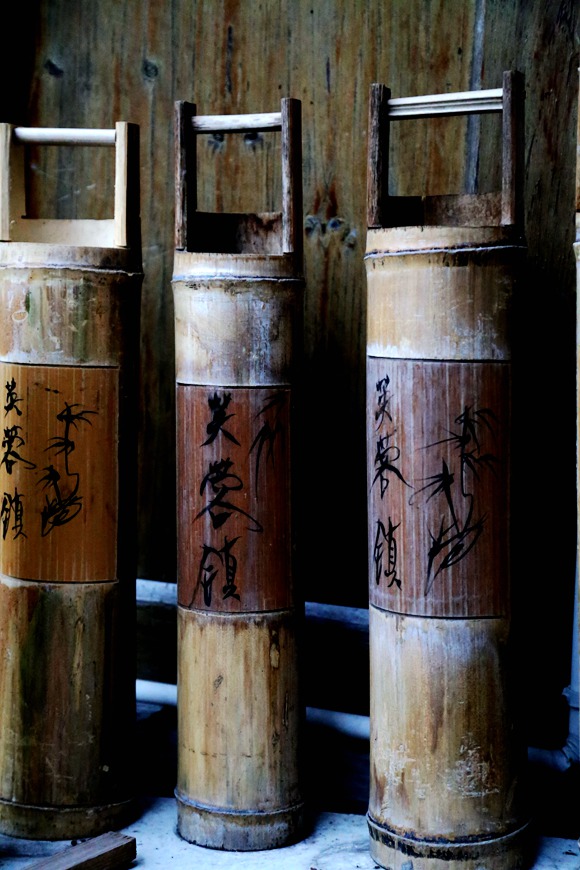 芙蓉鎮
芙蓉鎮
芙蓉鎮